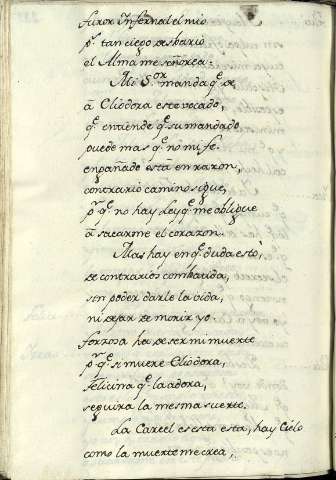 furor Infernal el mio
pr. tan ciego desbario
el Alma me señorea.
Mi Sor. manda qe. de
a Cliodora este vocado,
qe. entiende qe. su mandado
puede mas qe. no mi fe.
enpañado está en razon,
contrario camino sigue,
pr. qe. no hay Ley qe. me obligue
a sacarme el corazon.
Mas hay en qe. duda estò,
de contrarios combatida,
sin poder darle la vida,
ni dejar de morir yo.
forzosa ha de ser mi muerte
pr. qe. si muere Cliodora,
Felicina qe. la adora,
seguira la mesma suerte.
La Carcel es esta esta, hay Cielo
como la muerte me crea,